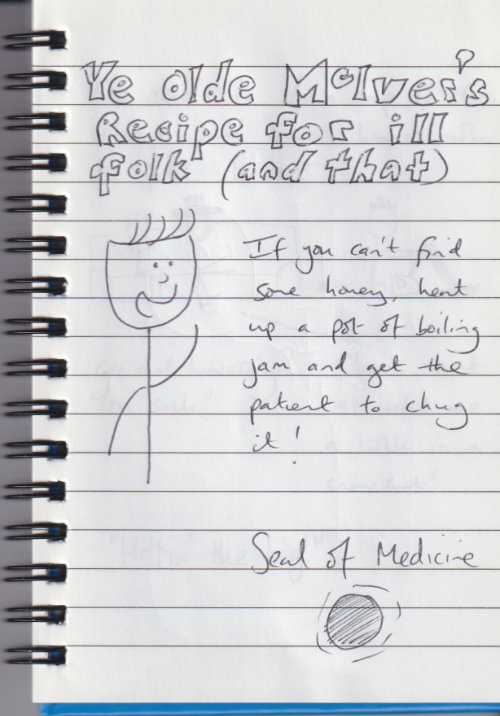 Ye olde McIver's
Recipe for ill
folk (and that)
If you can't find
some honey, heat
up a pot of boiling
jam and get the
patient to chug
it!
Seal of Medicine